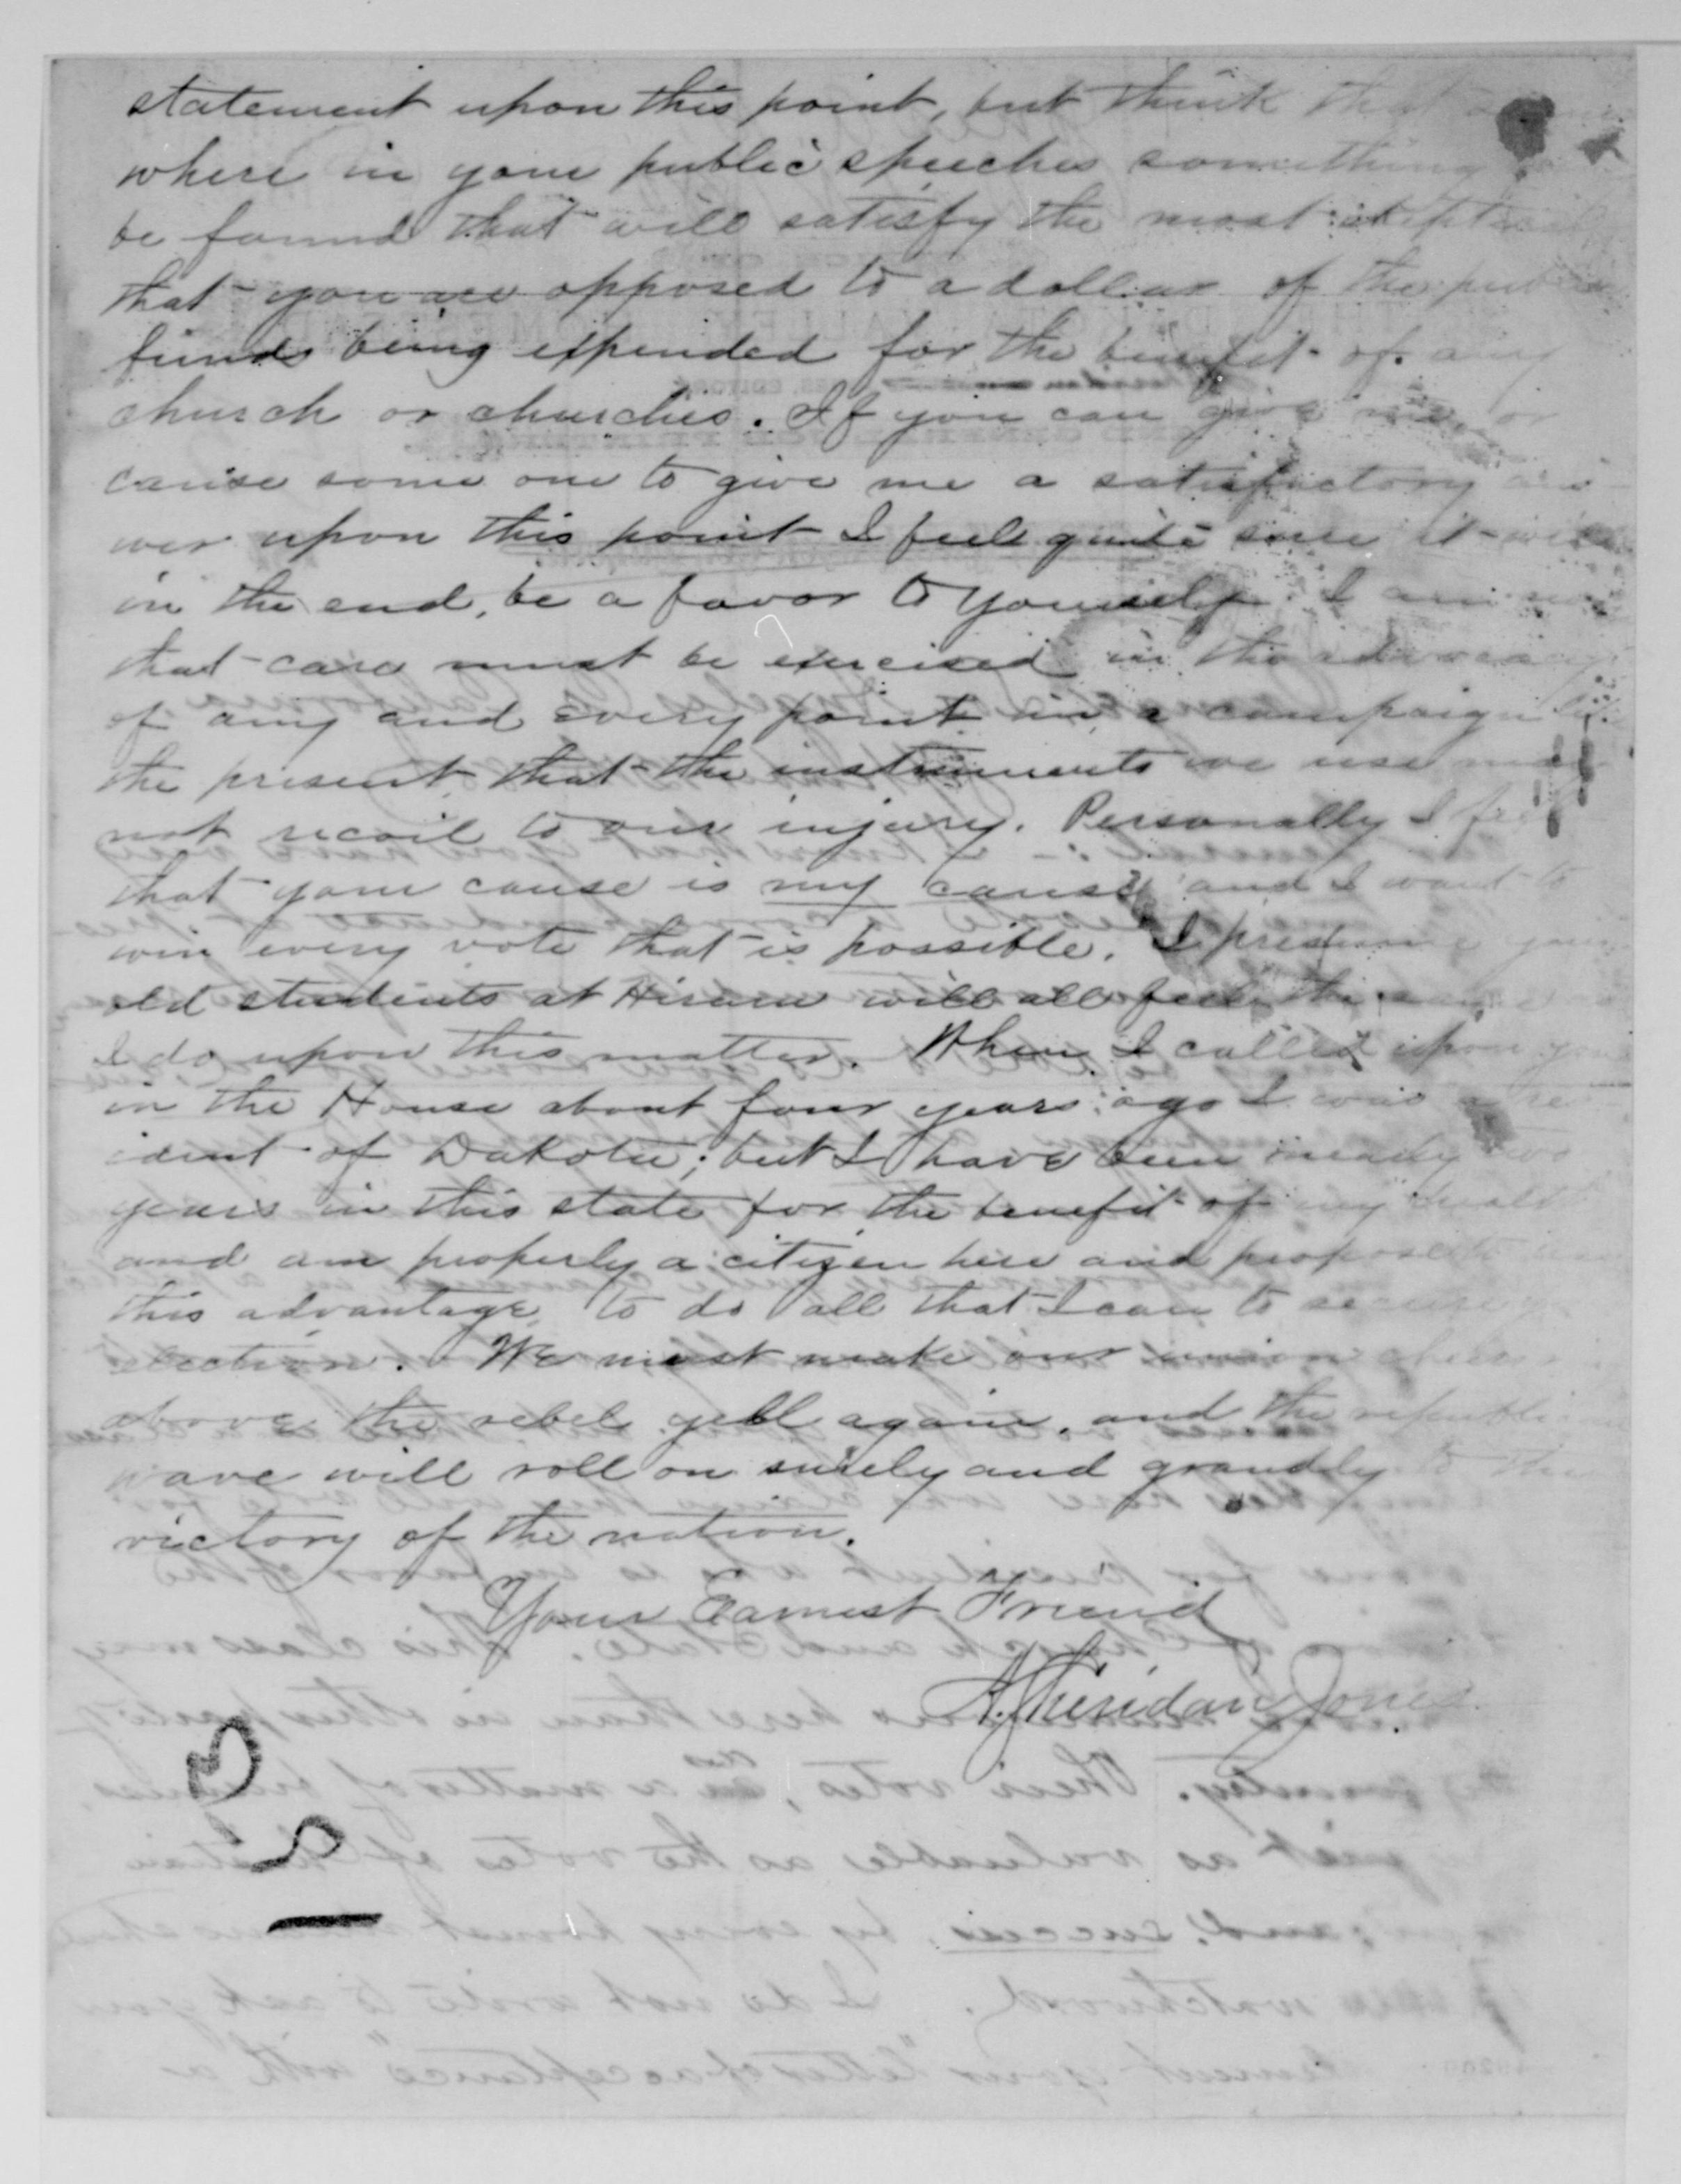 statement upon this point, but think that
where in your public speeches something
be found that will satisfy the most
that you are opposed to a dollar of the
funds being expended for the benefit of any
church or churches. If you can give me, or
cause some one to give me a satisfactory ans
wer upon this point I feel quite sure it will
in the end, be a favor to yourself. I am
that care must be exercised in the advocacy
of any and every point in a campaign
the present that the instruments we use may
not recoil to our injury. Personally I feel
that your cause is my cause and I want to
win every vote that is possible. I presume your
old students at Hiram will all feel the same
I do upon this matter. When I called upon you
in the House about four years ago I was a res
ident of Dakota; but I have been nearly two
years in this state for the benefit of my health
and am properly a citizen here and propose to
this advantage, to do all that I can to secure
election. We must make our union cheers
above the rebel yell again, and the
wave will roll on surely and grandly to the
victory of the nation.
Your Earnest Friend
A. Sheridan Jones.